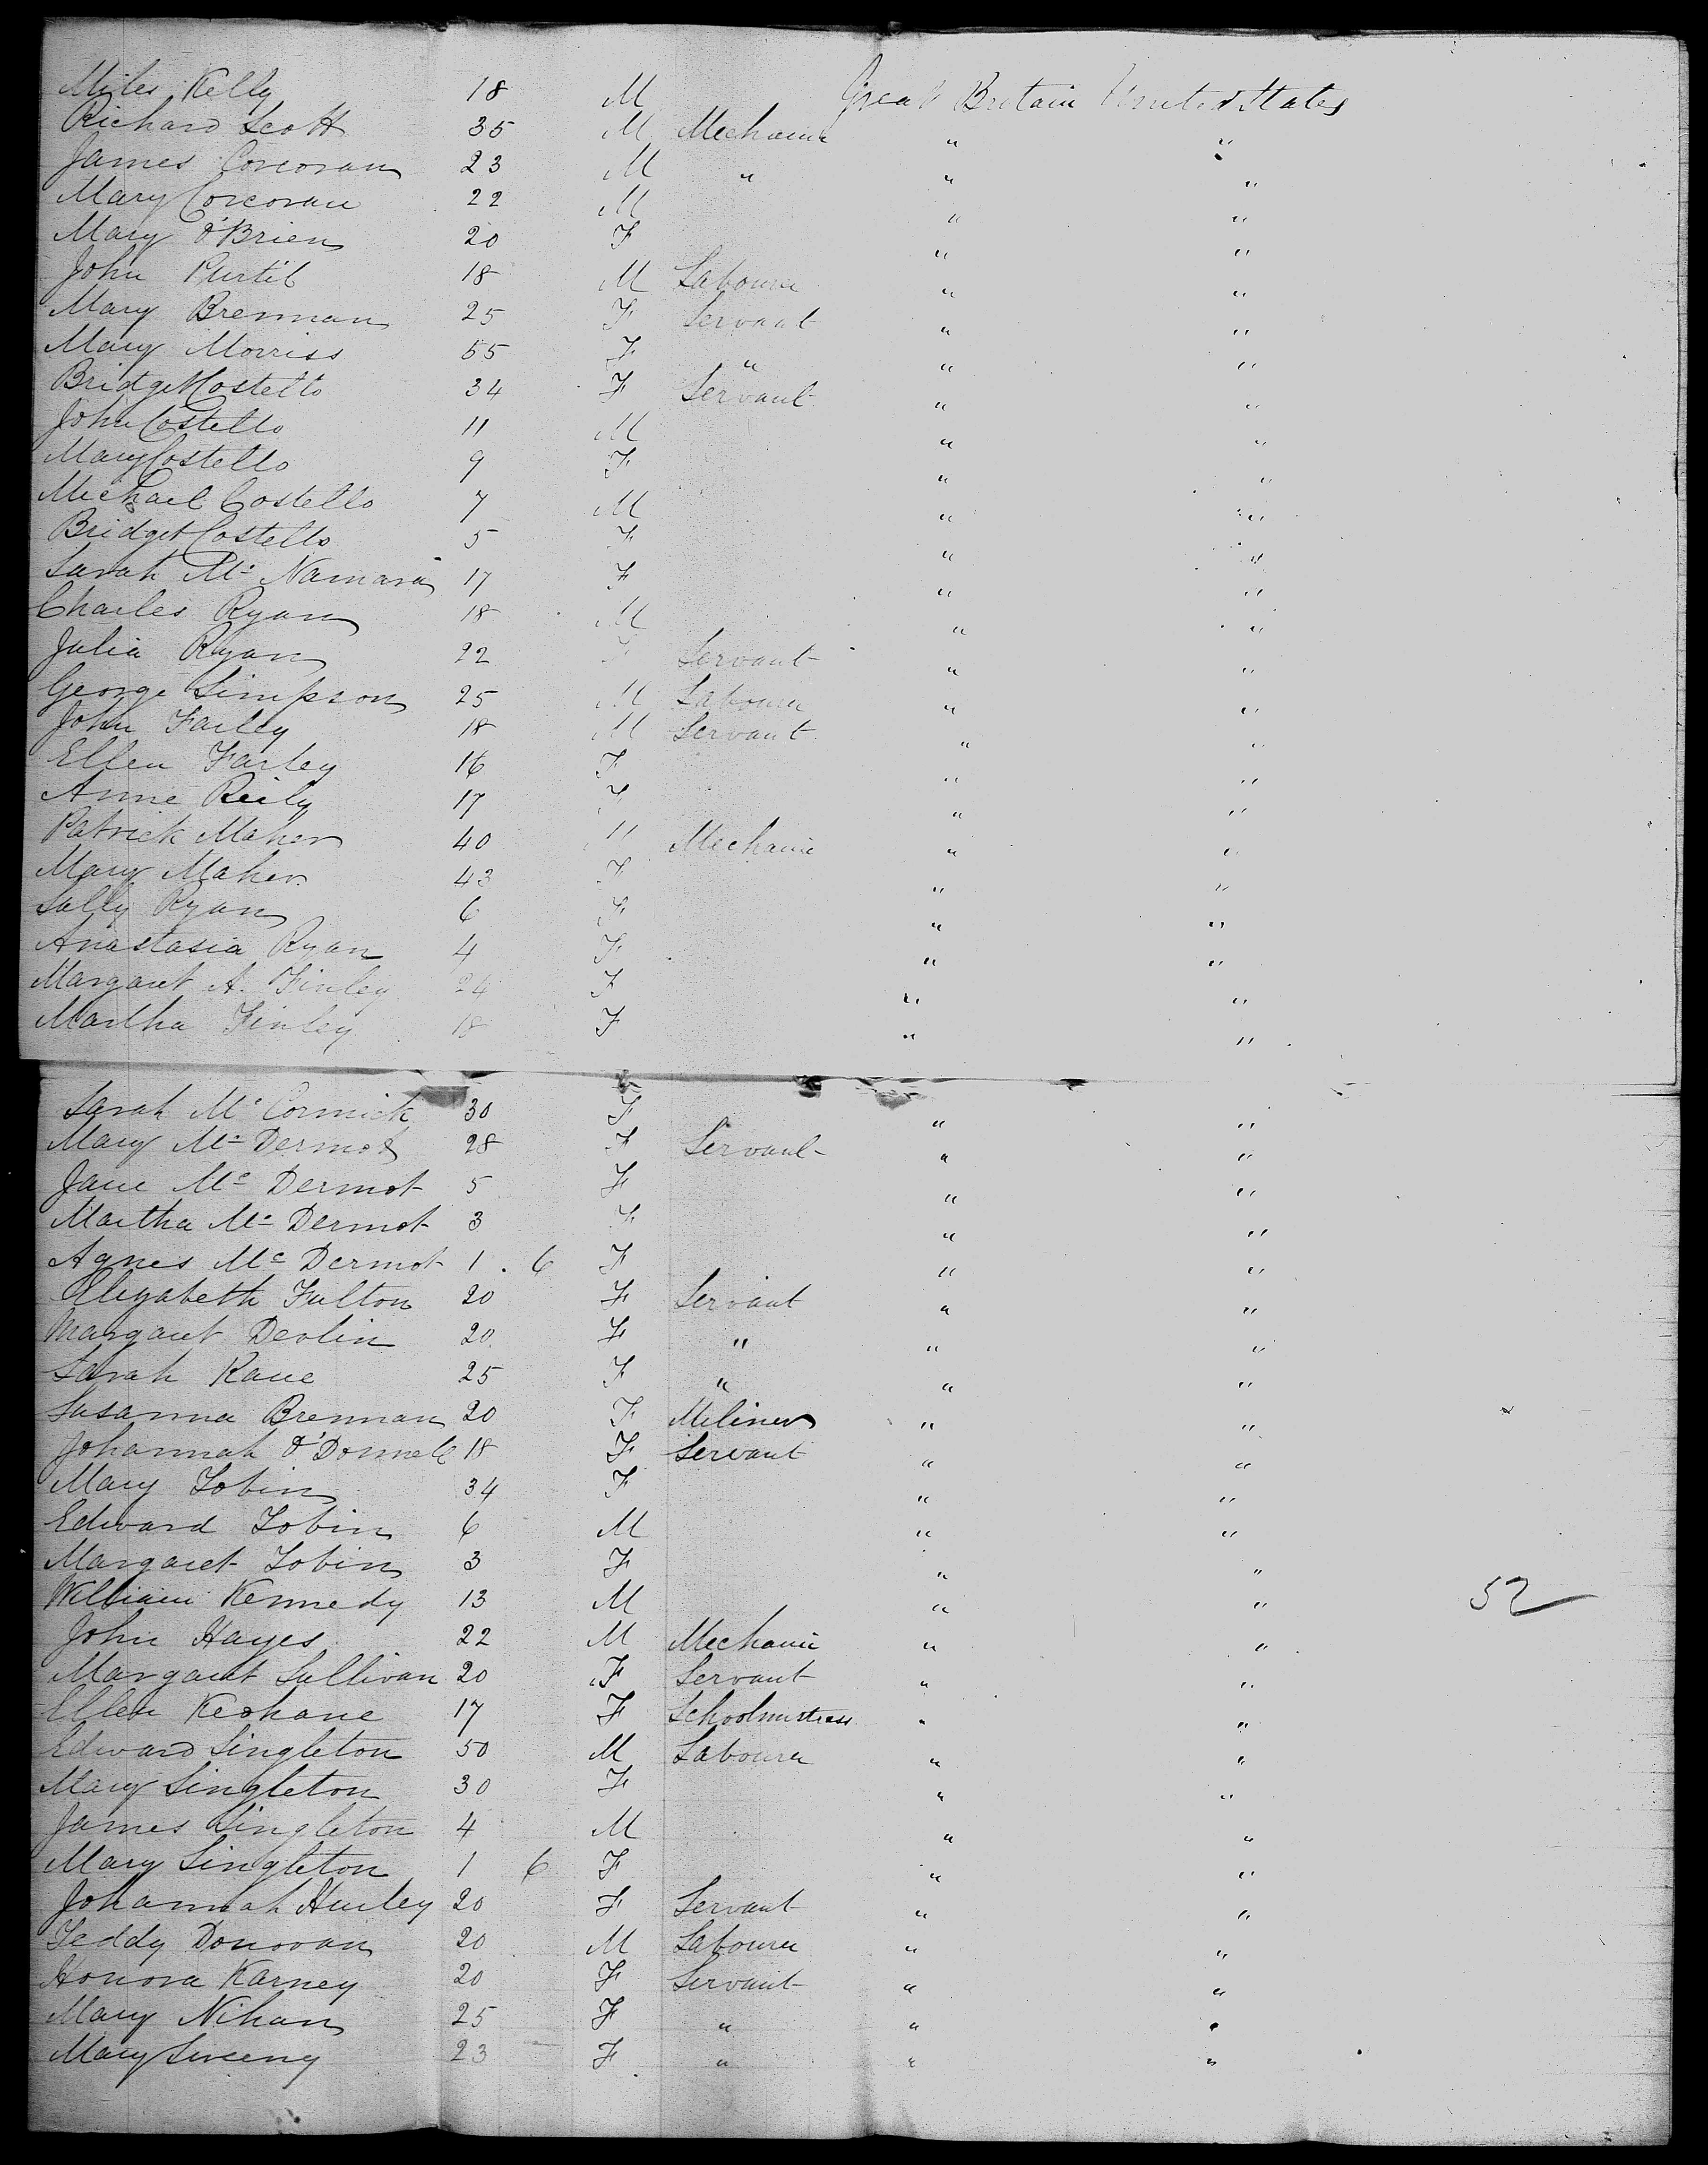 Miles Kelly 18 M Great Britain United States
Richard Scott 35 M Mechanic " "
James Corcoran 23 M " " "
Mary Corcoran 22 M " "
Mary O'Brien 20 F " "
John Purtil 18 M Labourer " "
Mary Brennan 25 F Servant " "
Mary Morriss 55 F " " "
Bridget Costello 34 F Servant " "
John Costello 11 M " "
Mary Costello 9 F " "
Michael Costello 7 M " "
Bridget Costello 5 F " "
Sarah Mc Namara 17 F " "
Charles Ryan 18 M " "
Julia Ryan 22 F Servant " "
George Simpson 25 M Labourer " "
John Farley 18 M Servant " "
Ellen Farley 16 F " "
Anne Reily 17 F " "
Patrick Maher 40 M Mechanic " "
Mary Maher 43 F " "
Sally Ryan 6 F " "
Anastasia Ryan 4 F " "
Margaret A. Finley 24 F " "
Martha Finley 18 F " "
Sarah Mc Cormick 30 F " "
Mary Mc Dermot 28 F Servant " "
Jane Mc Dermot 5 F " "
Martha Mc Dermot 3 F " "
Agnes Mc Dermot 1 . 6 F " "
Elizabeth Fulton 20 F Servant " "
Margaret Devlin 20 F " " "
Sarah Kane 25 F " " "
Susanna Brennan 20 F Miliner " "
Johannah O'Donnell 18 F Servant " "
Mary Tobin 34 F " "
Edward Tobin 6 M " "
Margaret Tobin 3 F " "
William Kennedy 13 M " " 52
John Hayes 22 M Mechanic " "
Margaret Sullivan 20 F Servant " "
Ellen Keohane 17 F Schoolmistress " "
Edward Singleton 50 M Labourer " "
Mary Singleton 30 F " "
James Singleton 4 M " "
Mary Singleton 1 6 F " "
Johannah Hurley 20 F Servant " "
Teddy Donovan 20 M Labourer " "
Honora Karney 20 F Servant " "
Mary Nihan 25 F " " "
Mary Sweeny 23 F " " "